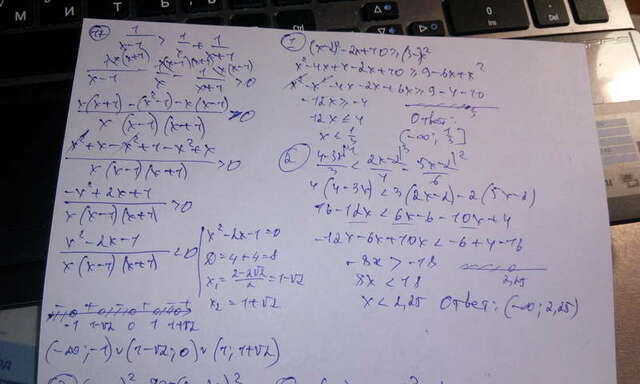 17 1/(x-1) > 1/x + 1/(x+1)
x(x+1)/(x-1) - (x-1)(x+1)/x - x(x-1)/(x+1) > 0
(x(x+1) - (x²-1) - x(x-1))/(x(x-1)(x+1)) > 0
(x² + x - x² + 1 - x² + x)/(x(x-1)(x+1)) > 0
(-x² + 2x + 1)/(x(x-1)(x+1)) > 0
(x² - 2x - 1)/(x(x-1)(x+1)) < 0
x² - 2x - 1 = 0
D = 4 + 4 = 8
x₁ = (2-2√2)/2 = 1-√2
x₂ = 1+√2
-1 1-√2 0 1 1+√2
(-∞; -1) ∪ (1-√2; 0) ∪ (1; 1+√2)
1 (x-2)² - 2x + 10 ≥ (3-x)²
x² - 4x + 4 - 2x + 10 ≥ 9 - 6x + x²
x² - x² - 4x - 2x + 6x ≥ 9 - 4 - 10
-12x ≥ -4
12x ≤ 4
x < 1/3
Ответ:
(-∞; 1/3]
2 (4-3x)/3 < (2x-2)/4 - (5x-2)/6
4(4-3x) < 3(2x-2) - 2(5x-2)
16 - 12x < 6x - 6 - 10x + 4
-12x - 6x + 10x < -6 + 4 - 16
-8x > -18
8x < 18
2,25
x < 2,25 Ответ: (-∞; 2,25)